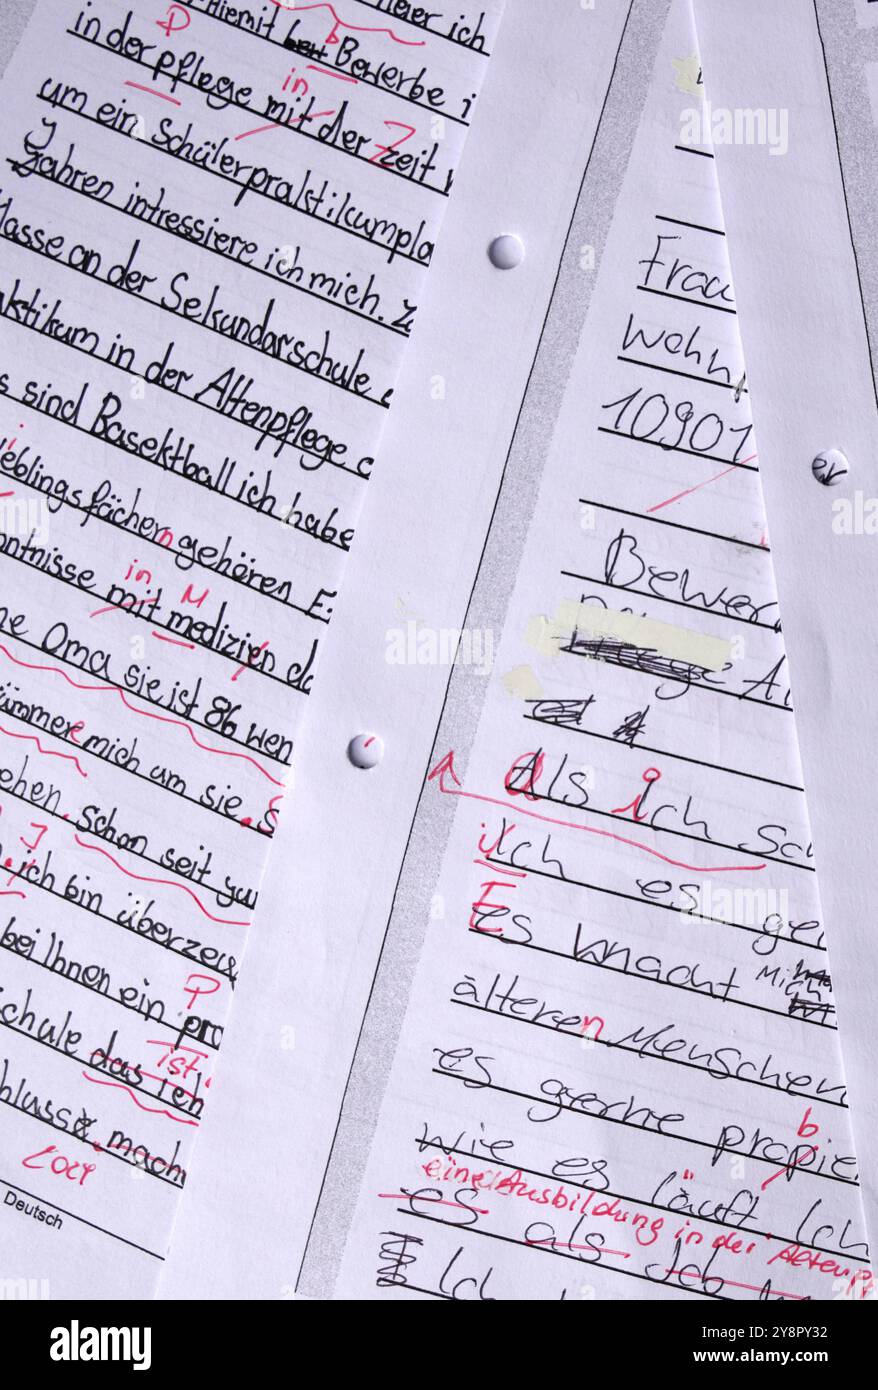 Hiemit bewerbe i
in der pflege mit der zeit
P
in
Z
um ein Schülerpraktikumpla
Jahren intressiere ich mich. Z
Klasse an der Sekundarschule
aktikum in der Altenpflege
s sind Basektball ich habe
ieblingsfächern gehören E
nntnisse mit medizien da
in
M
ne Oma sie ist 86 wen
kümmere mich um sie. S
ehen. schon seit
J
ich bin überzeu
bei Ihnen ein pra
P
Schule das ich
ist,
hlusse. mach
2024
Deutsch
Frau
Wohn
10901
Bewer
Als ich sch
A
ich es ger
Es macht Mich
älteren Menschen
es gerne propie
b
wie es läuft Ich
eine Ausbildung in der Altenp
es als Job
Ich
er
alamy
Image ID: 2Y8PY32
www.alamy.com